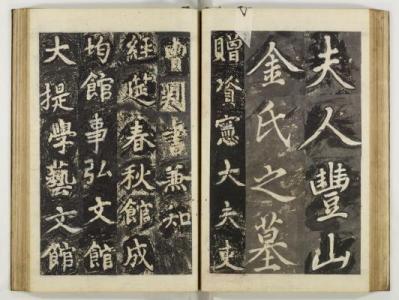 夫人豐山
金氏之墓
贈資憲大夫吏
曹判書兼知
經筵春秋館成
均館事弘文館
大提學藝文館